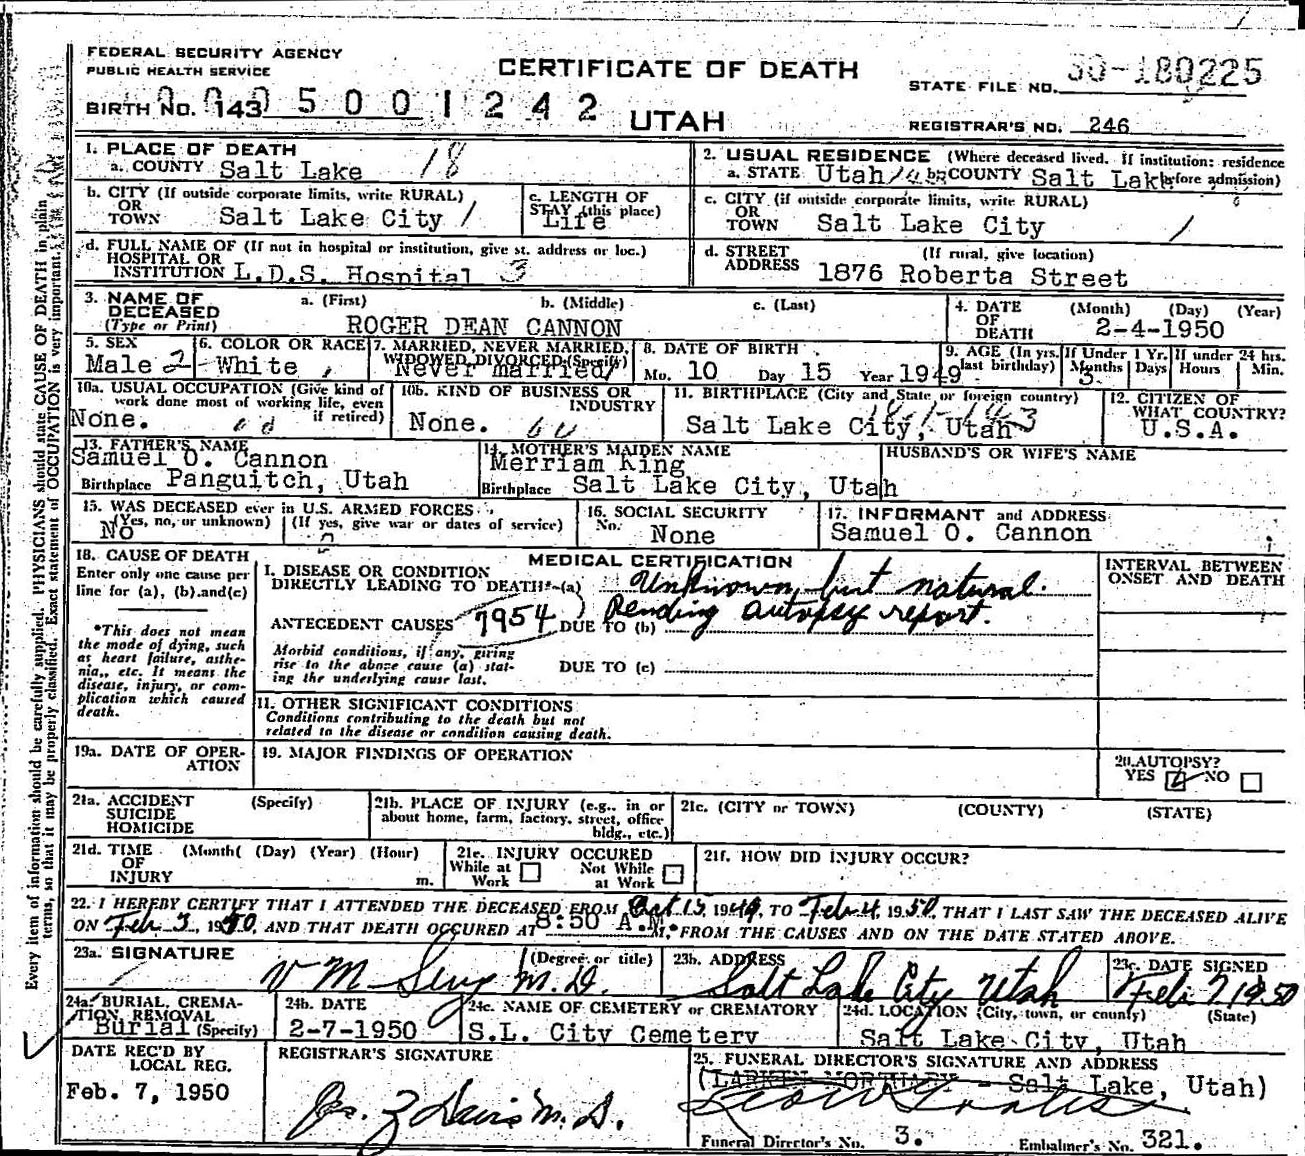 FEDERAL SECURITY AGENCY
PUBLIC HEALTH SERVICE
CERTIFICATE OF DEATH
STATE FILE NO. 180225
BIRTH NO. 143 5 0 0 1 2 4 2
UTAH
REGISTRAR'S NO. 246
1. PLACE OF DEATH
a. COUNTY Salt Lake 18
2. USUAL RESIDENCE (Where deceased lived. If institution: residence before admission)
a. STATE Utah b. COUNTY Salt Lake
b. CITY (If outside corporate limits, write RURAL)
OR
TOWN Salt Lake City 1
c. LENGTH OF
STAY (this place)
Life
c. CITY (if outside corporate limits, write RURAL)
OR
TOWN Salt Lake City 1
d. FULL NAME OF (If not in hospital or institution, give st. address or loc.)
HOSPITAL OR
INSTITUTION L.D.S. Hospital 3
d. STREET (If rural, give location)
ADDRESS 1876 Roberta Street
3. NAME OF DECEASED a. (First) b. (Middle) c. (Last)
(Type or Print) ROGER DEAN CANNON
4. DATE OF DEATH (Month) (Day) (Year)
2-4-1950
5. SEX
Male 2
6. COLOR OR RACE
White
7. MARRIED, NEVER MARRIED,
WIDOWED, DIVORCED (Specify)
Never married
8. DATE OF BIRTH
Mo. 10 Day 15 Year 1949
9. AGE (In yrs. last birthday)
If Under 1 Yr.
Months Days
3
If under 24 hrs.
Hours Min.
10a. USUAL OCCUPATION (Give kind of
work done most of working life, even
if retired)
None.
10b. KIND OF BUSINESS OR
INDUSTRY
None.
11. BIRTHPLACE (City and State or foreign country)
Salt Lake City, Utah
12. CITIZEN OF
WHAT COUNTRY?
U.S.A.
13. FATHER'S NAME
Samuel O. Cannon
Birthplace Panguitch, Utah
14. MOTHER'S MAIDEN NAME
Merriam King
Birthplace Salt Lake City, Utah
HUSBAND'S OR WIFE'S NAME
15. WAS DECEASED ever in U.S. ARMED FORCES
(Yes, no, or unknown) (If yes, give war or dates of service)
No
16. SOCIAL SECURITY
No. None
17. INFORMANT and ADDRESS
Samuel O. Cannon
18. CAUSE OF DEATH
Enter only one cause per
line for (a), (b) and (c)
*This does not mean
the mode of dying, such
as heart failure, asthe-
nia, etc. It means the
disease, injury, or com-
plication which caused
death.
MEDICAL CERTIFICATION
I. DISEASE OR CONDITION
DIRECTLY LEADING TO DEATH*(a) Unknown, but natural.
Pending autopsy report.
ANTECEDENT CAUSES 7954 DUE TO (b)
Morbid conditions, if any, giving
rise to the above cause (a) stat-
ing the underlying cause last.
DUE TO (c)
II. OTHER SIGNIFICANT CONDITIONS
Conditions contributing to the death but not
related to the disease or condition causing death.
INTERVAL BETWEEN
ONSET AND DEATH
19a. DATE OF OPER-
ATION
19. MAJOR FINDINGS OF OPERATION
20. AUTOPSY?
YES NO
21a. ACCIDENT (Specify)
SUICIDE
HOMICIDE
21b. PLACE OF INJURY (e.g., in or
about home, farm, factory, street, office
bldg., etc.)
21c. (CITY or TOWN) (COUNTY) (STATE)
21d. TIME (Month( (Day) (Year) (Hour)
OF
INJURY m.
21e. INJURY OCCURED
While at Work Not While at Work
21f. HOW DID INJURY OCCUR?
22. I HEREBY CERTIFY THAT I ATTENDED THE DECEASED FROM Oct 15, 1949, TO Feb 4, 1950, THAT I LAST SAW THE DECEASED ALIVE
ON Feb. 3, 1950, AND THAT DEATH OCCURED AT 8:50 A.M. M., FROM THE CAUSES AND ON THE DATE STATED ABOVE.
23a. SIGNATURE (Degree or title)
V M M.D.
23b. ADDRESS
Salt Lake City Utah
23c. DATE SIGNED
Feb 7 1950
24a. BURIAL, CREMA-
TION REMOVAL
Burial (Specify)
24b. DATE
2-7-1950
24c. NAME OF CEMETERY or CREMATORY
S.L. City Cemetery
24d. LOCATION (City, town, or county) (State)
Salt Lake City, Utah
DATE REC'D BY
LOCAL REG.
Feb. 7, 1950
REGISTRAR'S SIGNATURE
M.D.
25. FUNERAL DIRECTOR'S SIGNATURE AND ADDRESS
(LARKIN MORTUARY - Salt Lake, Utah)
Funeral Director's No. 3. Embalmer's No. 321.
Every item of information should be carefully supplied. PHYSICIANS should state CAUSE OF DEATH in plain
terms, so that it may be properly classified. Exact statement of OCCUPATION is very important.